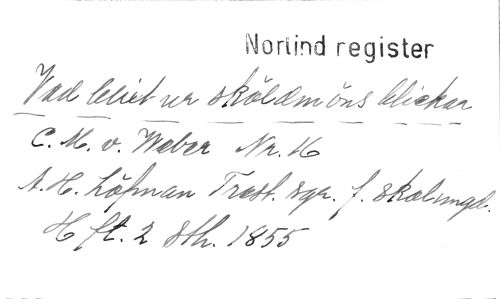 Norlind register
Vad blixt ur sköldmöns blickar
C. M. v. Weber Nr. 16
A. H. Löfman Trest. sgr. f. skolungd.
H ft. 2 Sth. 1855